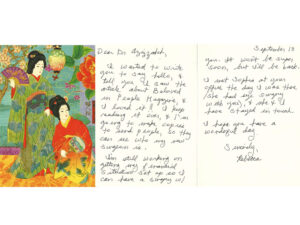 Dear Dr.
I wanted to write
you to say hello, &
tell you I saw the
article about Beloved
in People Magazine, &
I loved it! I keep
reading it over, & I'm
going to make copies
to send people, so they
can see who my new
surgeon is.
I'm still working on
getting my financial
situation set up so I
can have a surgery w/
September 18
you. It won't be super
soon, but I'll be back.
I met Sophia at your
office the day I was there
she had surgery
with you, & she & I
have stayed in touch.
I hope you have a
wonderful day.
Sincerely,
Rebecca